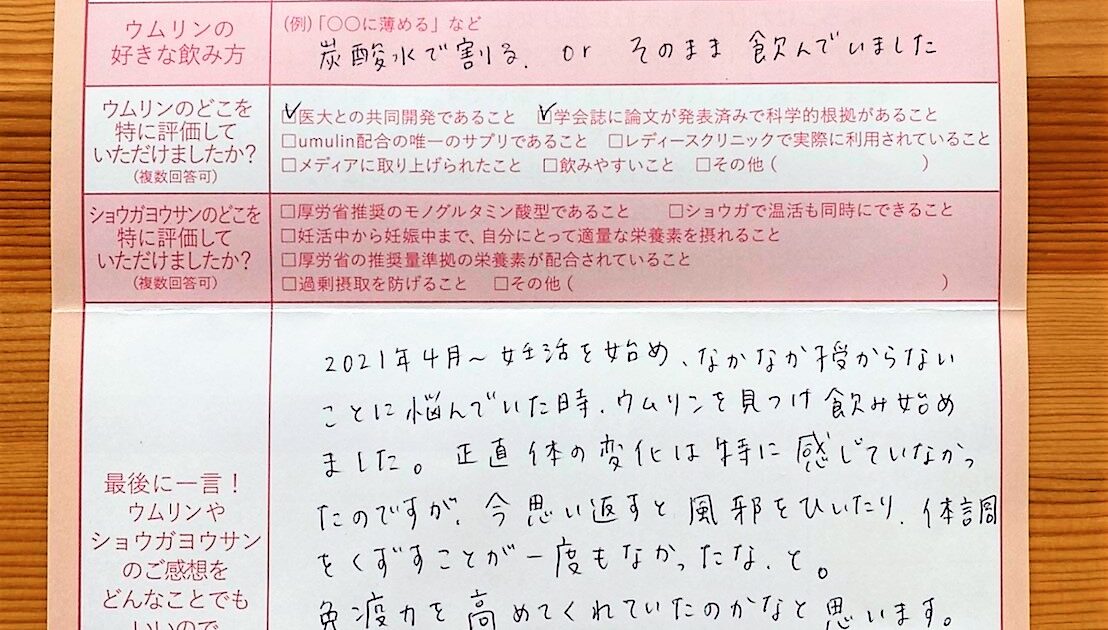 ウムリンの
好きな飲み方
(例)「〇〇に薄める」など
炭酸水で割る. or そのまま 飲んでいました
ウムリンのどこを
特に評価して
いただけましたか?
(複数回答可)
☑医大との共同開発であること ☑学会誌に論文が発表済みで科学的根拠があること
□umulin配合の唯一のサプリであること □レディースクリニックで実際に利用されていること
□メディアに取り上げられたこと □飲みやすいこと □その他 ( )
ショウガヨウサンのどこを
特に評価して
いただけましたか?
(複数回答可)
□厚労省推奨のモノグルタミン酸型であること □ショウガで温活も同時にできること
□妊活中から妊娠中まで、自分にとって適量な栄養素を摂れること
□厚労省の推奨量準拠の栄養素が配合されていること
□過剰摂取を防げること □その他 ( )
最後に一言!
ウムリンや
ショウガヨウサン
のご感想を
どんなことでも
いいので
2021年4月~妊活を始め、なかなか授からない
ことに悩んでいた時、ウムリンを見つけ飲み始め
ました。正直 体の変化は特に感じていなかっ
たのですが、今思い返すと風邪をひいたり、体調
をくずすことが一度もなかったな、と。
免疫力を高めてくれていたのかなと思います。